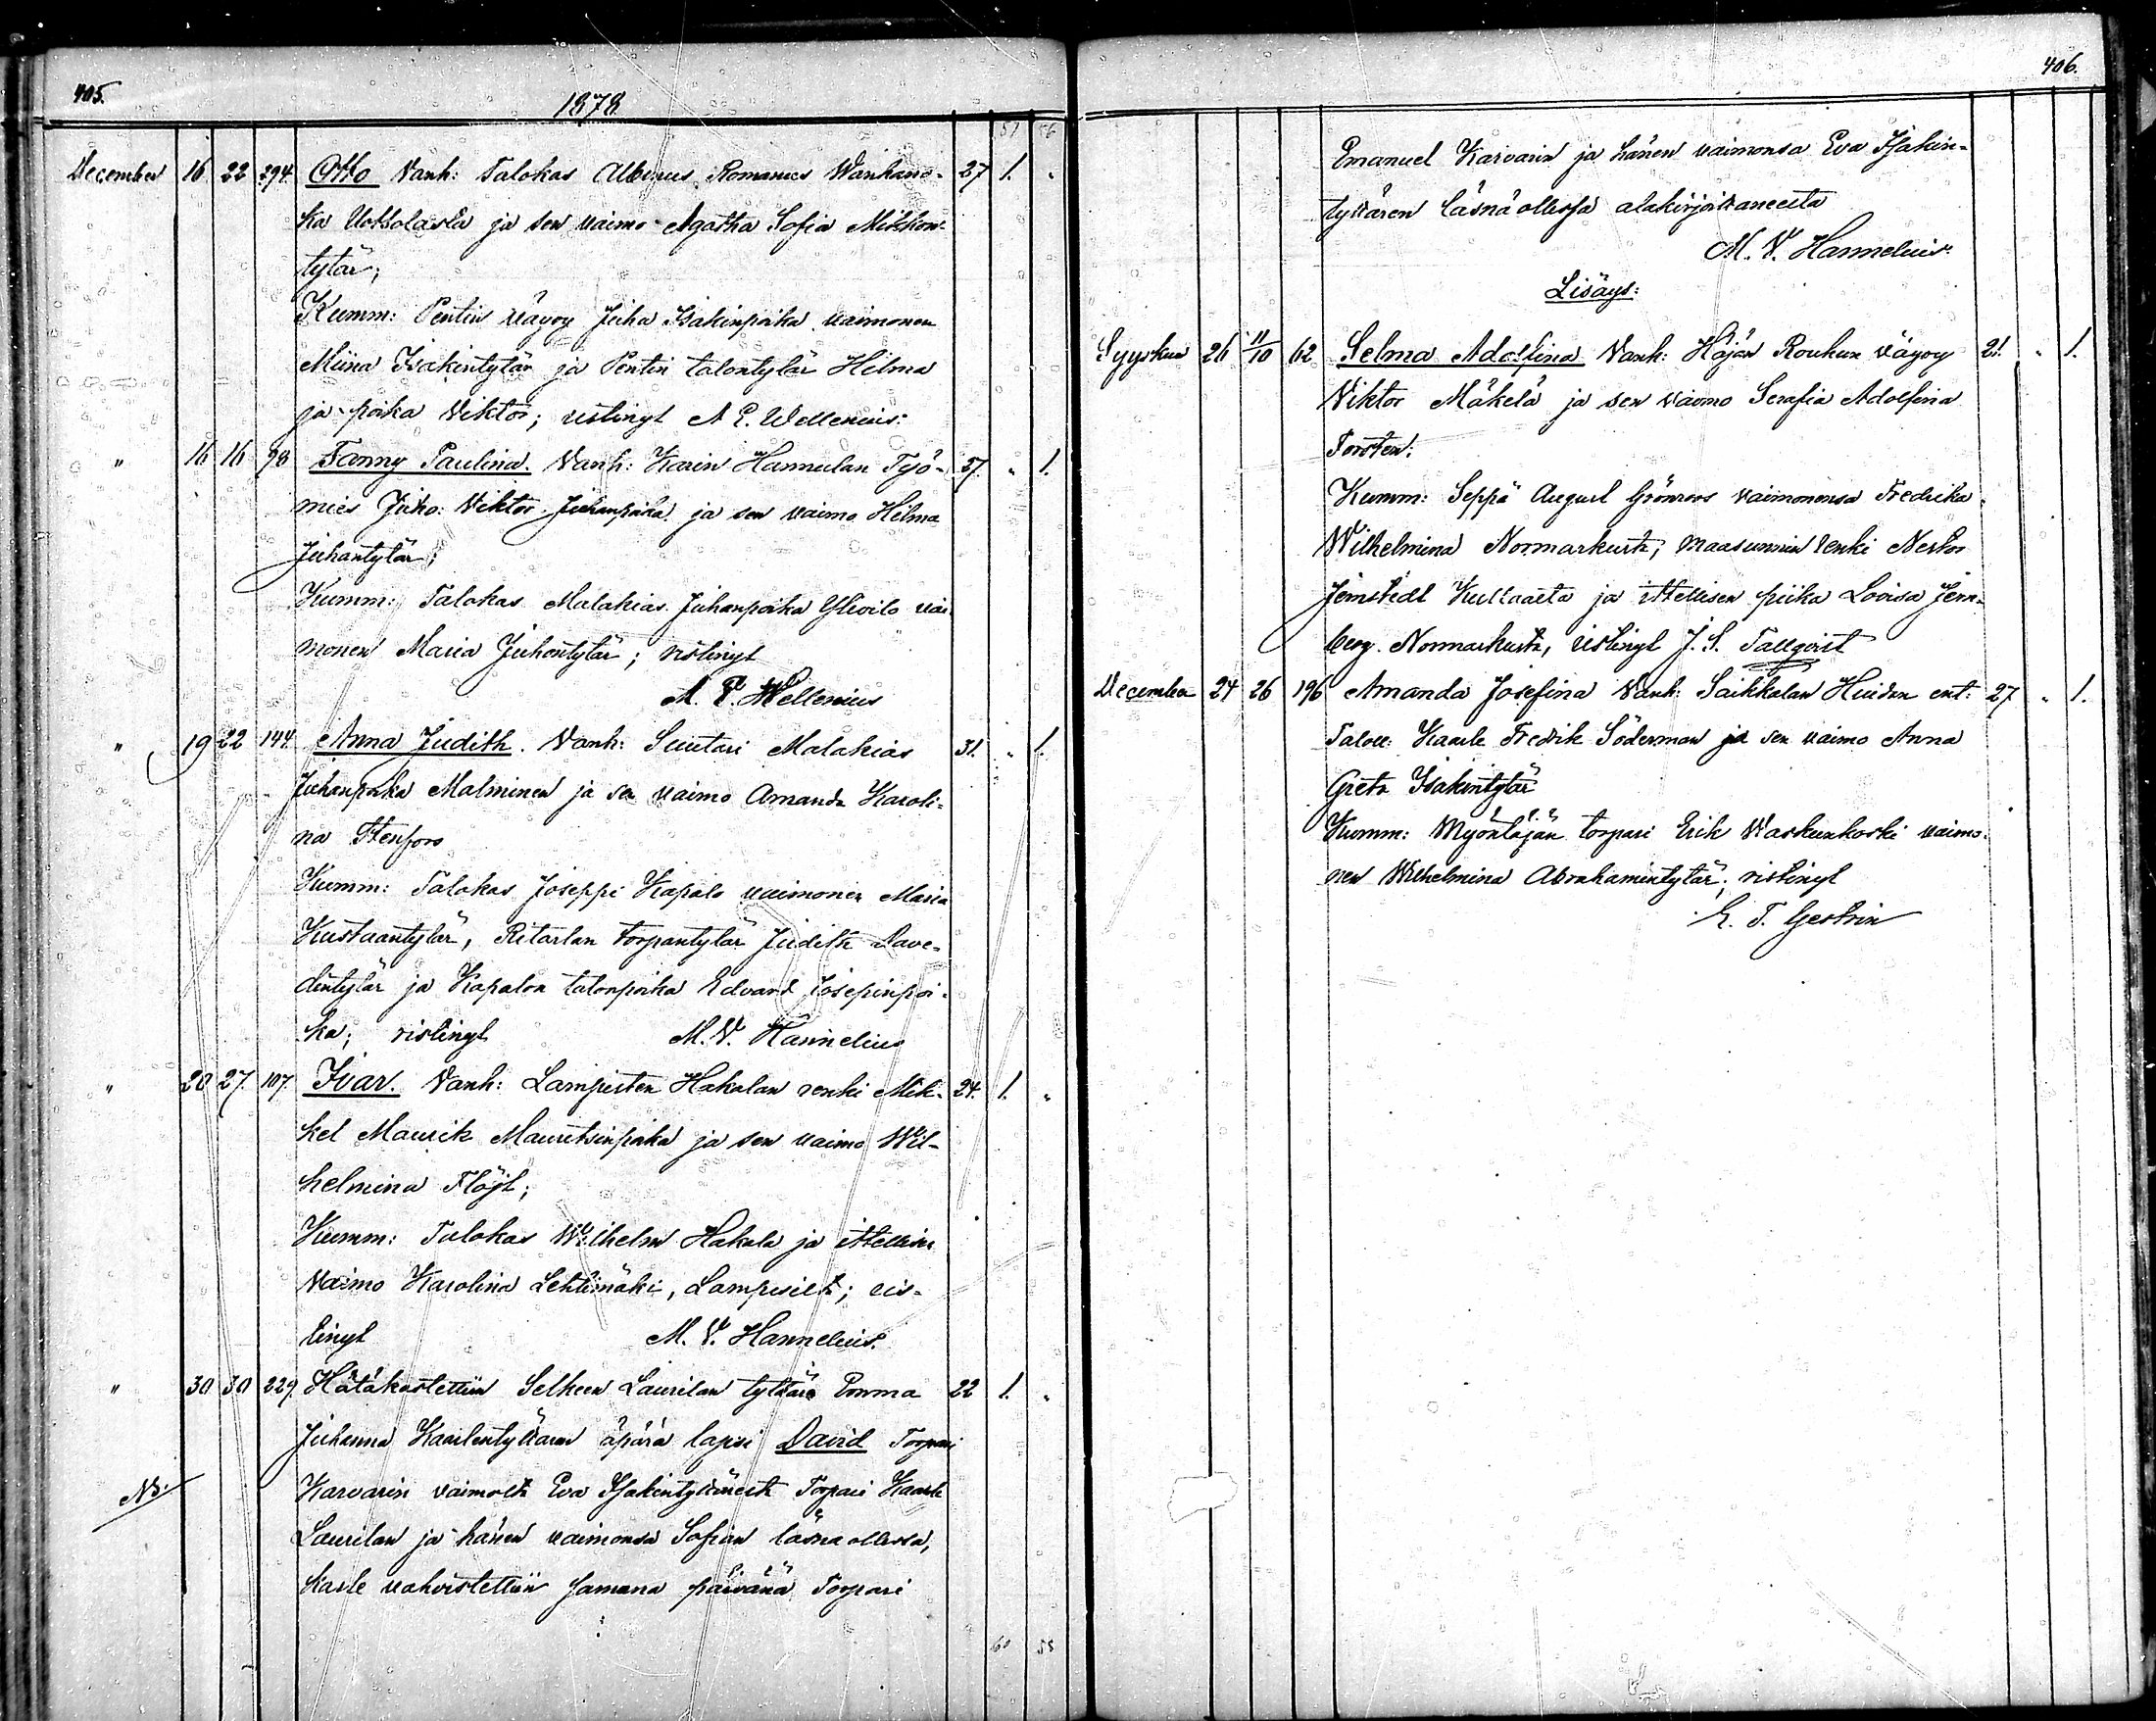 405.
1878
57 56
December 16 22 294. Otto Vanh: Talokas Albinus Romanus Wanhano- 27 1. "
ka Uotsolasta ja sen vaimo Agatha Sofia Mikkon-
tytär;
Kumm: Pentin vävyy Juha Isakinpoika vaimonen
Miina Isakintytär ja Pentin talontytär Hilma
ja poika Viktor; ristinyt A. P. Wellenius.
" 16 16 98 Fanny Paulina. Vanh: Karin Hannulan Työ- 37. " 1.
mies Juho Viktor Juhanpoika ja sen vaimo Hilma
Juhantytär;
Kumm: Talokas Malakias Juhanpoika Ylivilo vai-
monen Maria Juhontytär; ristinyt
A. P. Wellenius
" 19 22 144. Anna Judith. Vanh: Suutari Malakias 31. " 1.
Juhanpoika Malminen ja sen vaimo Amanda Karoli-
na Stenfors
Kumm: Talokas Joseppi Kapalo vaimonen Maria
Kustaantytär, Ritarlan torpantytär Judith Dave-
dintytär ja Kapalon talonpoika Edvard Josepinpoi-
ka; ristinyt M. V. Hannelius
" 20 27. 107. Ivar. Vanh: Lampisten Hakalan renki Mik- 24. 1. "
kel Maurik Mauritsinpoika ja sen vaimo Wil-
helmina Flöjt;
Kumm: Talokas Wilhelm Hakala ja ittellisen
vaimo Karolina Lehtimäki, Lampisilt; ris-
tinyt M. V. Hannelius.
" 30 30 229. Hätäkastettiin Selkeen Laurilan tyttären Emma 22 1. "
Juhanna Kaarlentyttären äpärä lapsi David Torpari
NB: Karvarin vaimolta Eva Isakintyttärestä Torpari Kaarle
Laurilan ja hänen vaimonsa Sofian läsnä ollessa,
kaste vahvistettiin samana päivänä Torpari
60 58
406.
Emanuel Karvarin ja hänen vaimonsa Eva Isakin-
tyttären läsnäollessa alakirjoittaneelta
M. V. Hannelius.
Lisäys:
Syyskuu 26 11/10 62 Selma Adolfina Vanh: Häjän Rouhun vävyy 21. " 1.
Viktor Mäkelä ja sen vaimo Serafia Adolfina
Forsten.
Kumm: Seppä August Grönroos vaimonensa Fredrika
Wilhelmina Normarkusta; Maasunnin renki Nestor
Jernstedt Kullaalta ja ittellisen piika Lovisa Jern-
berg. Normarkusta, ristinyt J. S. Tallqvist
December 24 26 196 Amanda Josefina Vanh: Saikkalan Huidan ent: 27 " 1.
Taloll: Kaarle Fredrik Söderman ja sen vaimo Anna
Greta Isakintytär
Kumm: Myöntäjän torpari Erik Waskunkoski vaimo-
nen Wilhelmina Abrahamintytär; ristinyt
E. F. Gestrin